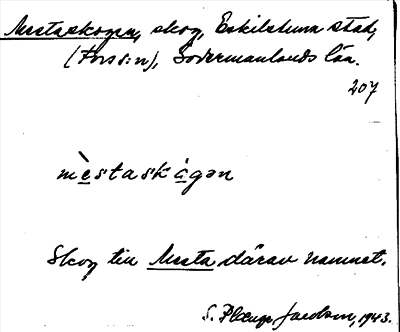 Mestaskogen, skog, Eskilstuna stad,
(Fors sn), Södermanlands län.
207
mèstaskágən
Skog till Mesta därav namnet.
S. Plænge Jacobson, 1943.